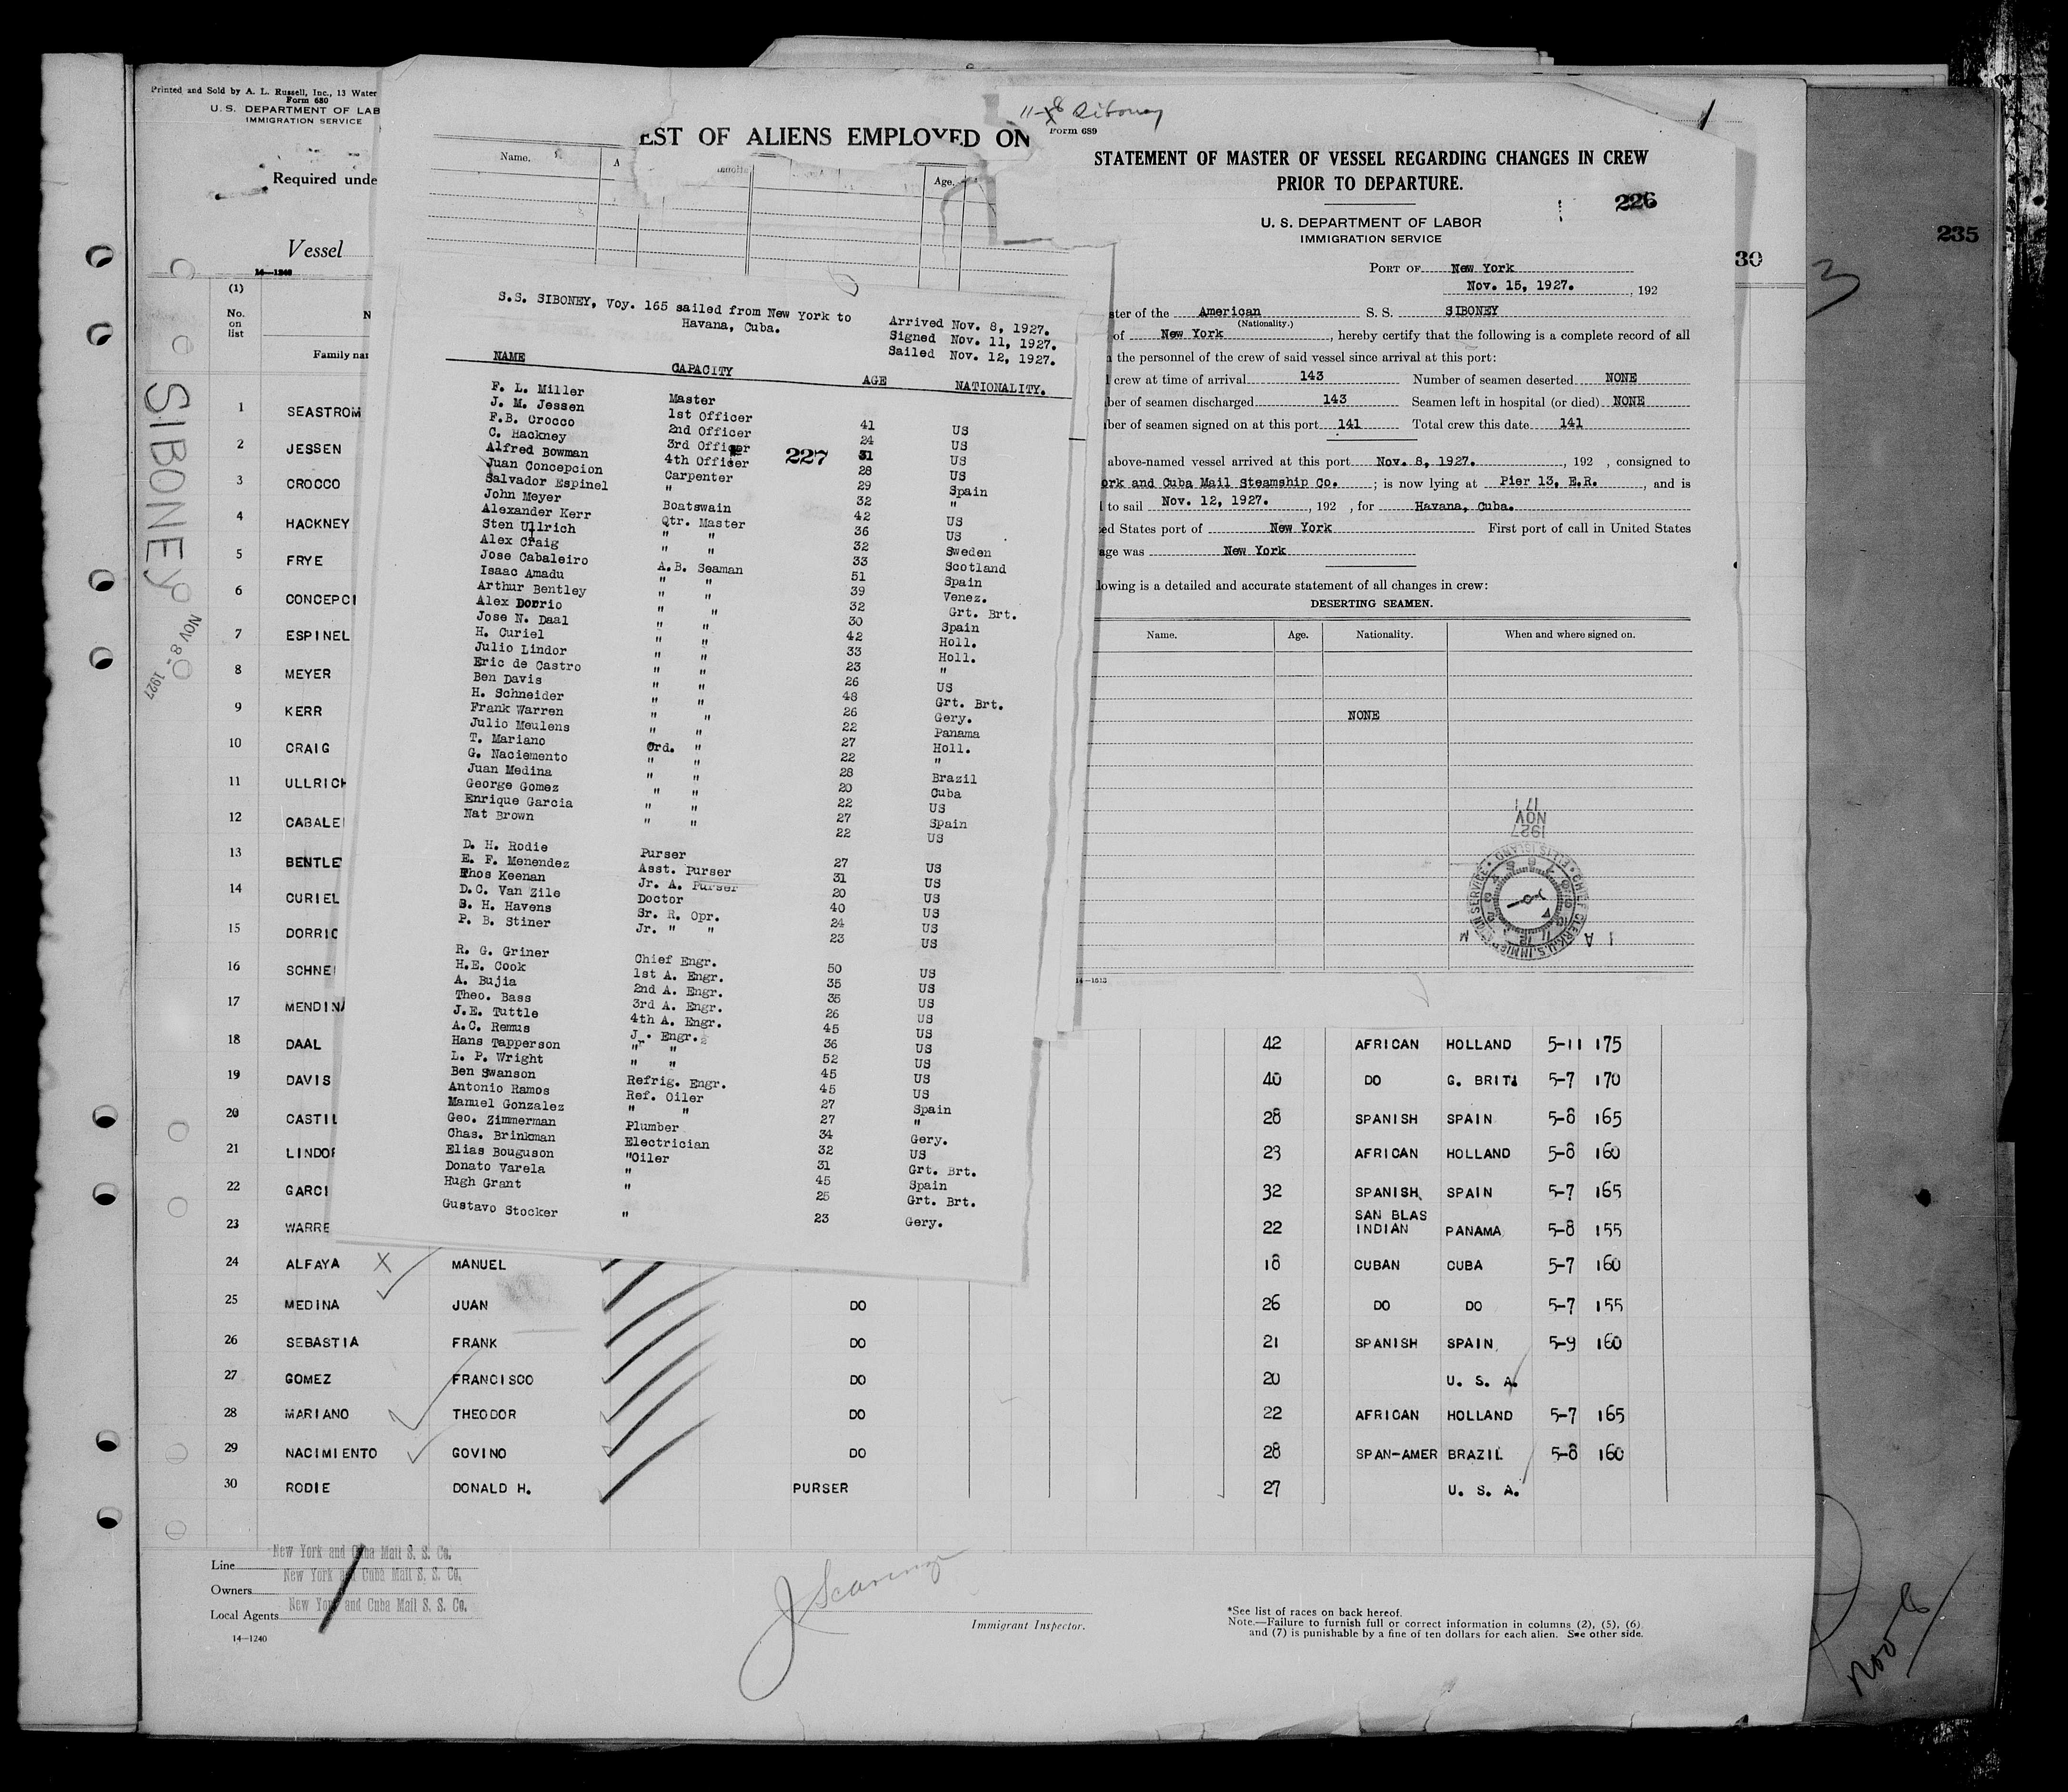 Printed and Sold by A. L. Russell, Inc., 13 Water
Form 680
U. S. DEPARTMENT OF LAB
IMMIGRATION SERVICE
Required unde
Vessel
14—1240
(1)
No. on list
Family nar
SIBONEY
NOV 8- 1927
1 SEASTROM
2 JESSEN
3 CROCCO
4 HACKNEY
5 FRYE
6 CONCEPCI
7 ESPINEL
8 MEYER
9 KERR
10 CRAIG
11 ULLRICH
12 CABALEI
13 BENTLE
14 CURIEL
15 DORRIO
16 SCHNEI
17 MENDINA
18 DAAL
19 DAVIS
20 CASTIL
21 LINDOR
22 GARCI
23 WARRE
EST OF ALIENS EMPLOYED ON
Name. Age.
S.S. SIBONEY, Voy. 165 sailed from New York to
Havana, Cuba.
Arrived Nov. 8, 1927.
Signed Nov. 11, 1927.
Sailed Nov. 12, 1927.
NAME CAPACITY AGE NATIONALITY.
227
F. L. Miller Master
J. M. Jessen 1st Officer 41 US
F.B. Crocco 2nd Officer 24 US
C. Hackney 3rd Officer 31 US
Alfred Bowman 4th Officer 28 US
Juan Concepcion Carpenter 29 Spain
Salvador Espinel " 32 "
John Meyer Boatswain 42 US
Alexander Kerr Qtr. Master 36 US
Sten Ullrich " " 32 Sweden
Alex Craig " " 33 Scotland
Jose Cabaleiro A.B. Seaman 51 Spain
Isaac Amadu " " 39 Venez.
Arthur Bentley " " 32 Grt. Brt.
Alex Dorrio " " 30 Spain
Jose N. Daal " " 42 Holl.
H. Curiel " " 33 Holl.
Julio Lindor " " 23 "
Eric de Castro " " 26 US
Ben Davis " " 48 Grt. Brt.
H. Schneider " " 26 Gery.
Frank Warren " " 22 Panama
Julio Meulens " " 27 Holl.
T. Mariano Ord. " 22 "
G. Naciemento " " 28 Brazil
Juan Medina " " 20 Cuba
George Gomez " " 22 US
Enrique Garcia " " 27 Spain
Nat Brown " " 22 US
D. H. Rodie Purser 27 US
E. F. Menendez Asst. Purser 31 US
Thos Keenan Jr. A. Purser 20 US
D.C. Van Zile Doctor 40 US
S. H. Havens Sr. R. Opr. 24 US
P. B. Stiner Jr. " " 23 US
R. G. Griner Chief Engr. 50 US
H.E. Cook 1st A. Engr. 35 US
A. Bujia 2nd A. Engr. 35 US
Theo. Bass 3rd A. Engr. 26 US
J.E. Tuttle 4th A. Engr. 45 US
A.C. Remus Jr. Engr. 36 US
Hans Tapperson " " 52 US
L. P. Wright " " 45 US
Ben Swanson Refrig. Engr. 45 US
Antonio Ramos Ref. Oiler 27 Spain
Manuel Gonzalez " " 27 "
Geo. Zimmerman Plumber 34 Gery.
Chas. Brinkman Electrician 32 US
Elias Bouguson "Oiler 31 Grt. Brt.
Donato Varela " 45 Spain
Hugh Grant " 25 Grt. Brt.
Gustavo Stocker " 23 Gery.
11-8 Siboney
Form 689
STATEMENT OF MASTER OF VESSEL REGARDING CHANGES IN CREW
PRIOR TO DEPARTURE.
226
U. S. DEPARTMENT OF LABOR
IMMIGRATION SERVICE
PORT OF New York
Nov. 15, 1927. , 192
ster of the American S. S. SIBONEY
(Nationality.)
of New York , hereby certify that the following is a complete record of all
the personnel of the crew of said vessel since arrival at this port:
crew at time of arrival 143 Number of seamen deserted NONE
ber of seamen discharged 143 Seamen left in hospital (or died) NONE
ber of seamen signed on at this port 141 Total crew this date 141
above-named vessel arrived at this port Nov. 8, 1927. , 192 , consigned to
ork and Cuba Mail Steamship Co. ; is now lying at Pier 13, E.R. , and is
to sail Nov. 12, 1927. , 192 , for Havana, Cuba.
ed States port of New York First port of call in United States
age was New York
lowing is a detailed and accurate statement of all changes in crew:
DESERTING SEAMEN.
Name. Age. Nationality. When and where signed on.
NONE
1927
NOV
17
CHIEF CLERK U.S. IMMIGRATION SERVICE • ELLIS ISLAND
14—1513
30
235
3
42 AFRICAN HOLLAND 5-11 175
40 DO G. BRIT. 5-7 170
28 SPANISH SPAIN 5-8 165
23 AFRICAN HOLLAND 5-8 160
32 SPANISH SPAIN 5-7 165
22 SAN BLAS INDIAN PANAMA 5-8 155
24 ALFAYA X MANUEL 18 CUBAN CUBA 5-7 160
25 MEDINA JUAN DO 26 DO DO 5-7 155
26 SEBASTIA FRANK DO 21 SPANISH SPAIN 5-9 160
27 GOMEZ FRANCISCO DO 20 U. S. A.
28 MARIANO THEODOR DO 22 AFRICAN HOLLAND 5-7 165
29 NACIMIENTO GOVINO DO 28 SPAN-AMER BRAZIL 5-8 160
30 RODIE DONALD H. PURSER 27 U. S. A.
Line New York and Cuba Mail S. S. Co.
Owners New York and Cuba Mail S. S. Co.
Local Agents New York and Cuba Mail S. S. Co.
14—1240
Immigrant Inspector.
*See list of races on back hereof.
Note.—Failure to furnish full or correct information in columns (2), (5), (6)
and (7) is punishable by a fine of ten dollars for each alien. See other side.
Nov 8